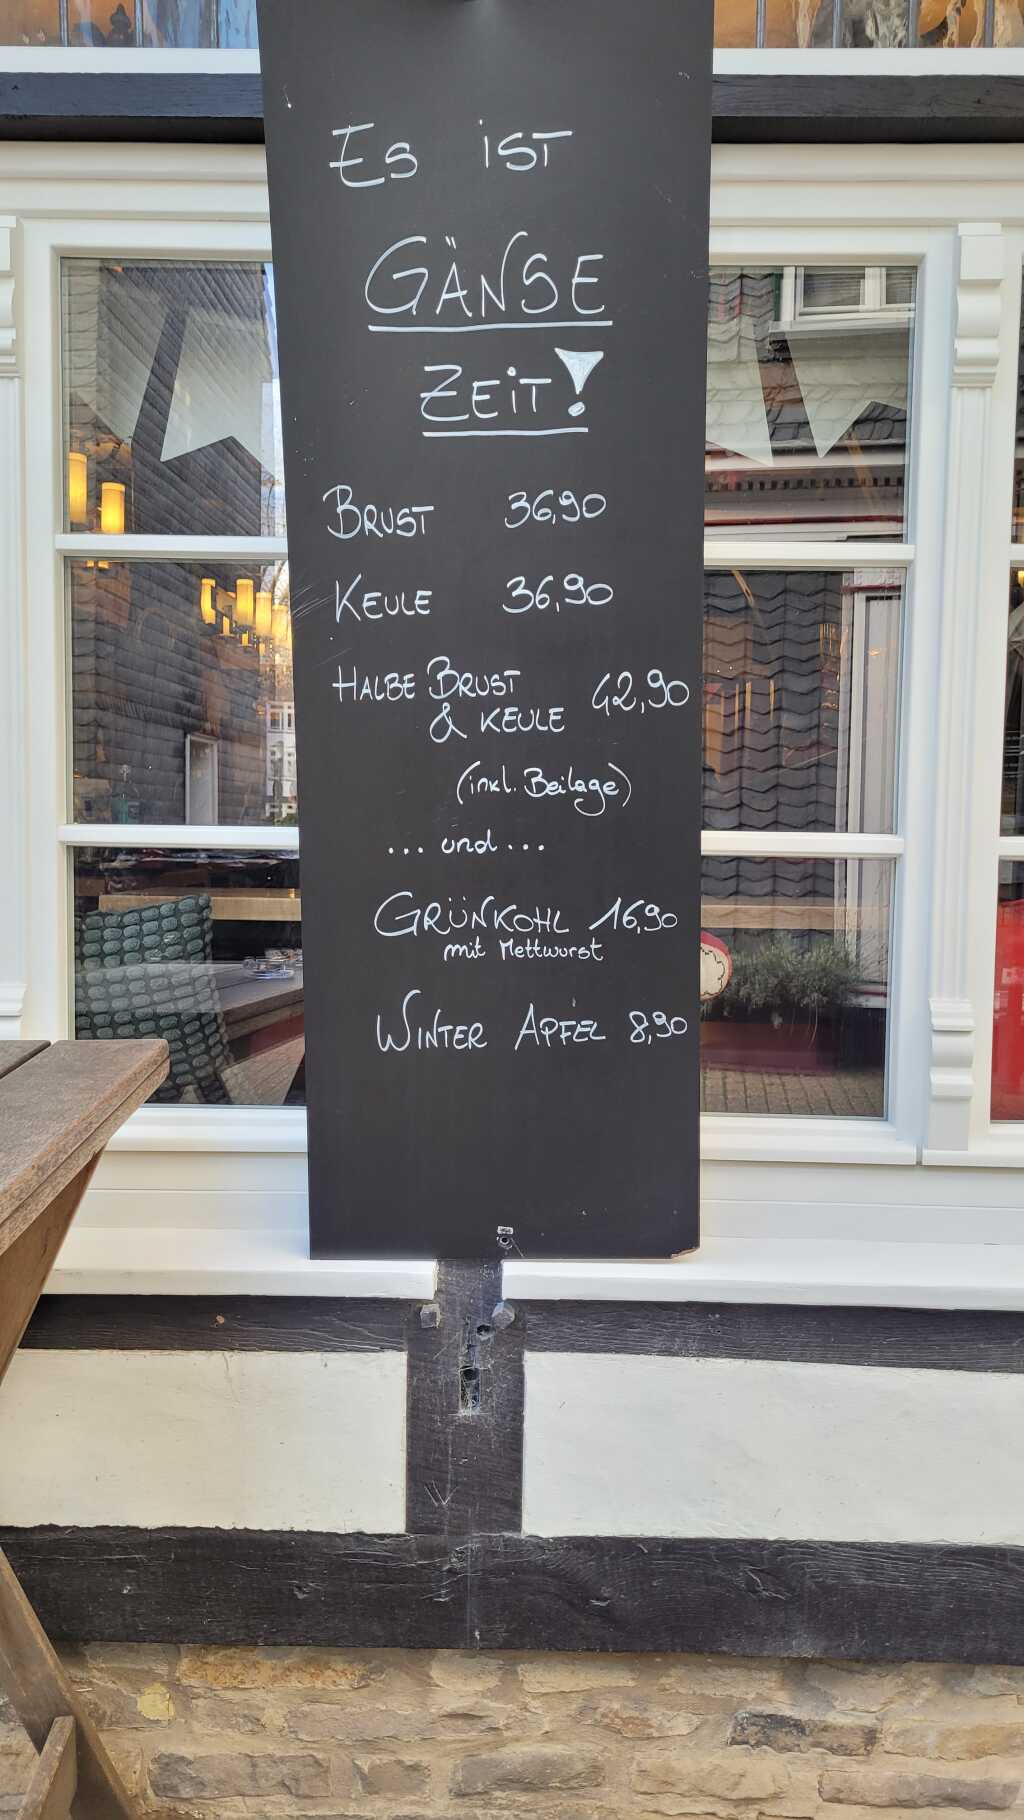 Es ist
GÄNSE
ZEIT!
BRUST 36,90
KEULE 36,90
HALBE BRUST
& KEULE 42,90
(inkl. Beilage)
... und ...
GRÜNKOHL 16,90
mit Mettwurst
WINTER APFEL 8,90